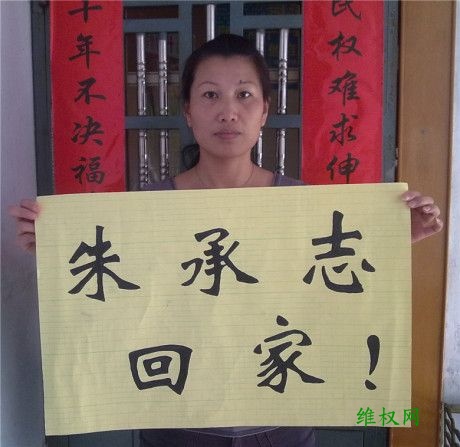 十年不决福
民权难求伸
朱承志
回家！
维权网